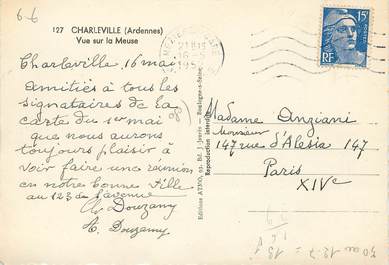 66
127 CHARLEVILLE (Ardennes)
Vue sur la Meuse
Charleville, 16 mai
Amitiés à tous les
signataires de la
carte du 1er mai
que nous aurons
toujours plaisir à
voir faire une réunion
en notre bonne ville
au 123 de l'avenue
Ch. Douzamy
A. Douzamy
Reproduction interdite
21H15
16-5
15F
RF
Madame Anziani
Monsieur
147 rue d'Alésia 147
Paris
XIVe